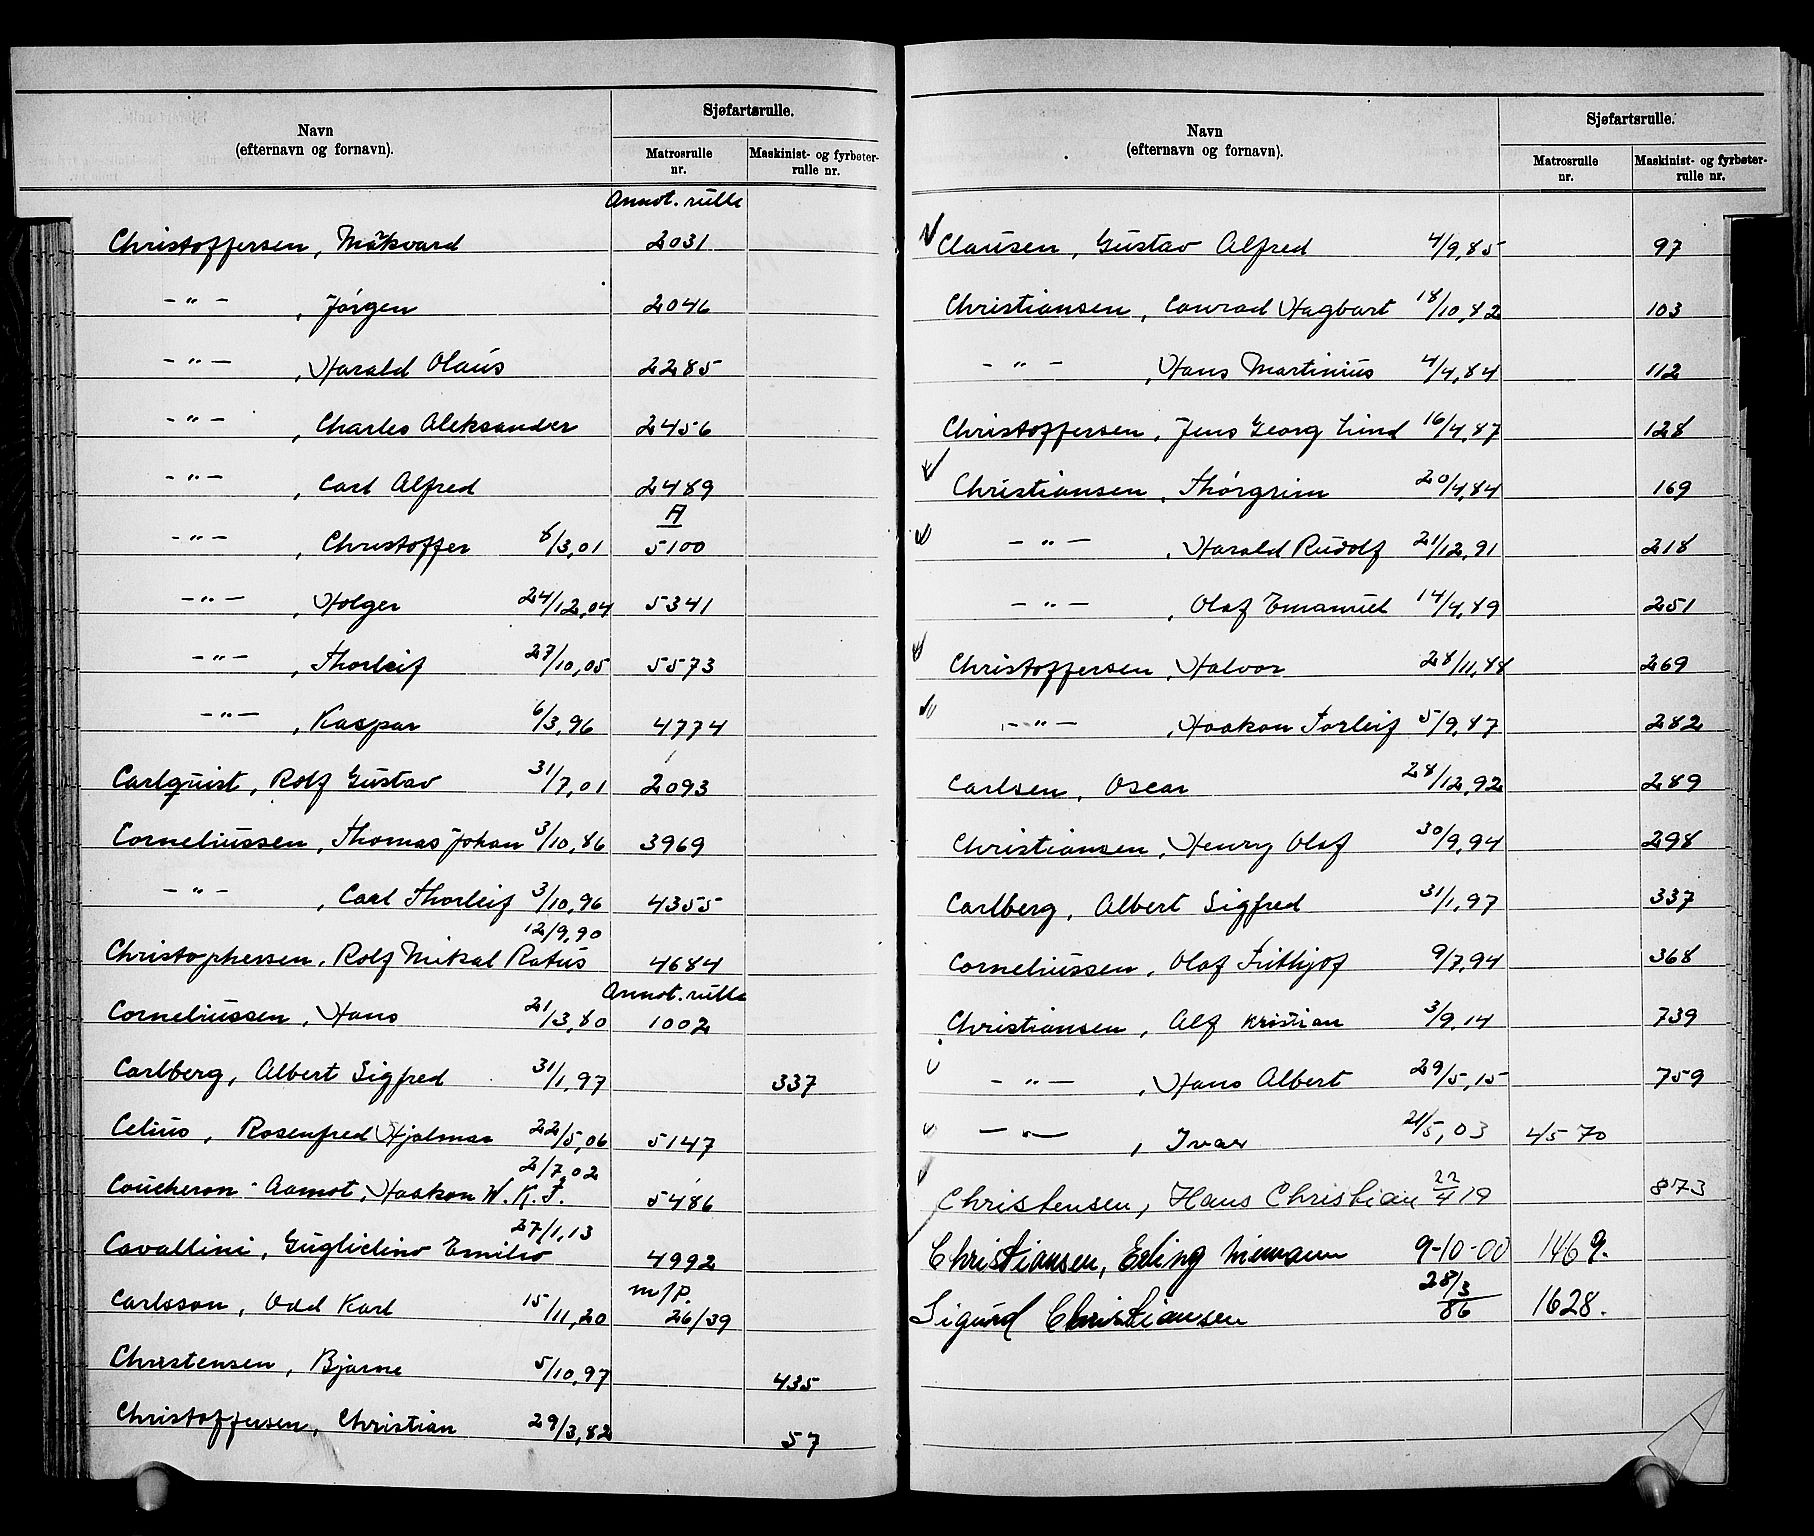 Navn
(efternavn og fornavn).
Sjøfartsrulle.
Matrosrulle nr.
Maskinist- og fyrbøter-rulle nr.
Annot. rulle
Christoffersen, Markvard 2031
-"- , Jørgen 2046
-"- , Harald Olaus 2285
-"- , Charles Aleksander 2456
-"- , Carl Alfred 2489
A
-"- , Christoffer 8/3,01 5100
-"- , Holger 24/12,04 5341
-"- , Thorleif 27/10,05 5573
-"- , Kaspar 6/3,96 4774
Carlquist, Rolf Gustav 31/7,01 2093
Corneliussen, Thomas Johan 3/10,86 3969
-"- , Carl Thorleif 3/10,96 4355
12/9,90
Christophersen, Rolf Mikal Ratus 4684
Annot. rulle
Corneliussen, Hans 21/3,80 1002
Carlberg, Albert Sigfred 31/1,97 337
Celius, Rosenfred Hjalmar 22/5,06 5147
2/7,02
Coucheron-Aamot, Haakon W. K. F. 5486
27/1,13
Cavallini, Guglielmo Emilio 4992
m/p.
Carlsson, Odd Karl 15/11,20 26/39
Christensen, Bjarne 5/10,97 435
Christoffersen, Christian 29/3,82 57
Navn
(efternavn og fornavn).
Sjøfartsrulle.
Matrosrulle nr.
Maskinist- og fyrbøter-rulle nr.
Clausen, Gustav Alfred 4/9,85 97
Christiansen, Conrad Hagbart 18/10,82 103
-"- , Hans Martinius 4/4,84 112
Christoffersen, Jens Georg Lund 16/4,87 128
Christiansen, Thorgrim 20/4,84 169
-"- , Harald Rudolf 21/12,91 218
-"- , Olaf Emanuel 14/4,89 251
Christoffersen, Halvor 28/11,88 269
-"- , Haakon Torleif 5/9,87 282
Carlsen, Oscar 28/12,92 289
Christiansen, Henry Olaf 30/9,94 298
Carlberg, Albert Sigfred 31/1,97 337
Corneliussen, Olaf Frithjof 9/7,94 368
Christiansen, Alf Kristian 3/9,14 739
-"- , Hans Albert 29/5,15 759
-"- , Ivar 21/5,03 4570
Christensen, Hans Christian 22/4 19 873
Christiansen, Erling Niemann 9-10-00 1469.
Sigurd Christiansen 28/3 86 1628.